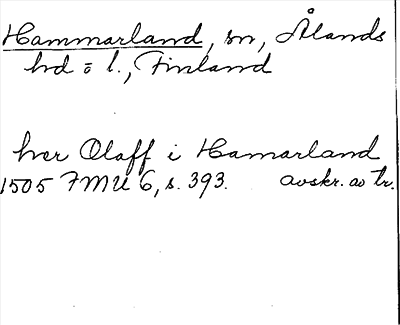 Hammarland, sn, Ålands
hd o l., Finland
her Olaff i Hamarland
1505 FMU 6, s. 393. avskr. av tr.